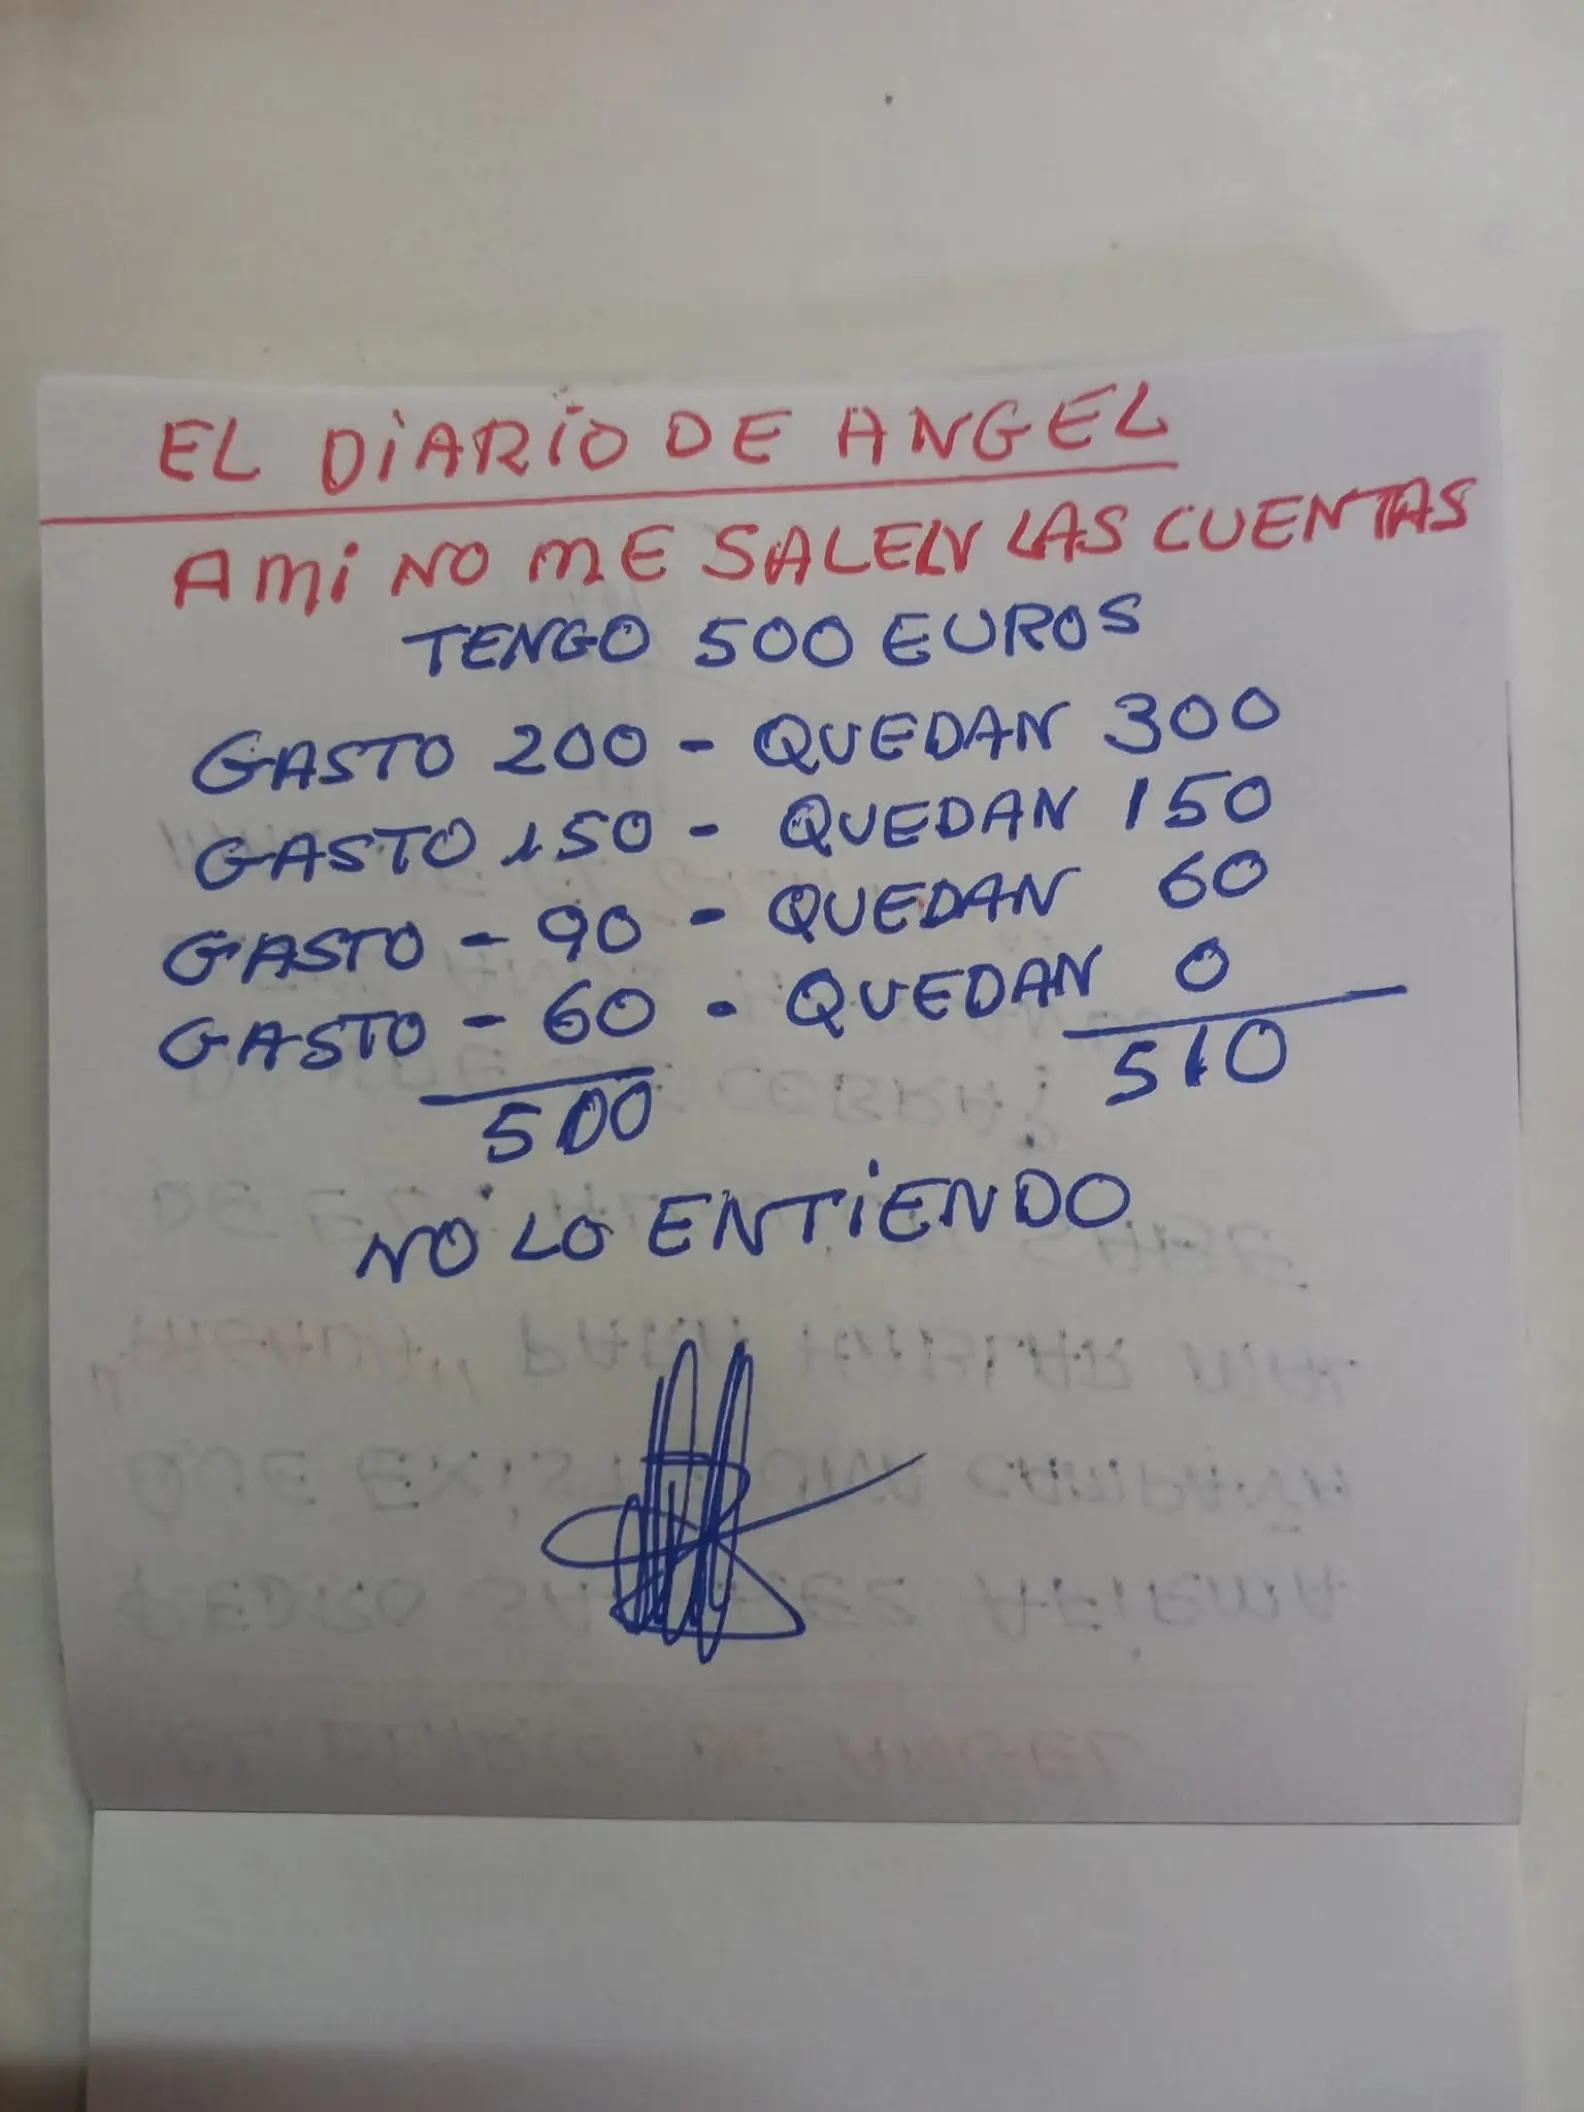 EL DiARiO DE ANGEL
AMi NO ME SALEN LAS CUENTAS
TENGO 500 EUROS
GASTO 200 - QUEDAN 300
GASTO 150 - QUEDAN 150
GASTO - 90 - QUEDAN 60
GASTO - 60 - QUEDAN 0
500 510
NO LO ENTiENDO